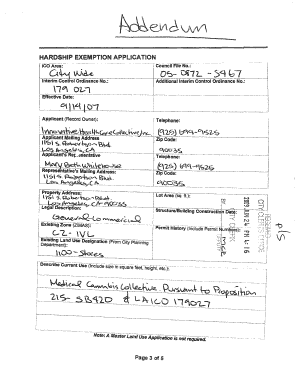 Addendum
HARDSHIP EXEMPTION APPLICATION
ICO Area: Council File No.:
City Wide 05-0872-S467
Interim Control Ordinance No.: Additional Interim Control Ordinance No.:
179027
Effective Date:
9/14/07
Applicant (Record Owner): Telephone:
(925) 699-9525
Applicant Mailing Address Zip Code:
1151 S. Robertson Blvd 90035
Los Angeles, CA
Applicant's Representative Telephone:
Mary Beth (925) 699-9525
Representative's Mailing Address Zip Code:
1151 S Robertson Blvd 90035
Los Angeles, CA
Property Address Lot Area (sq. ft.):
1151 S. Robertson Blvd
Los Angeles, CA 90035
Legal Description: Structure/Building Construction Date:
General-Commercial
Existing Zone (ZIMAS) Permit History (Include Permit Numbers):
C2-1VL
Existing Land Use Designation (From City Planning
Department):
1100-Stores
CITY CLERK'S OFFICE
BY
p/s
Describe Current Use (Include size in square feet, height, etc.):
Medical Cannabis Collective Pursuant to Proposition
215- SB420 & LA ICO 179027
Note: A Master Land Use Application is not required.
Page 3 of 8